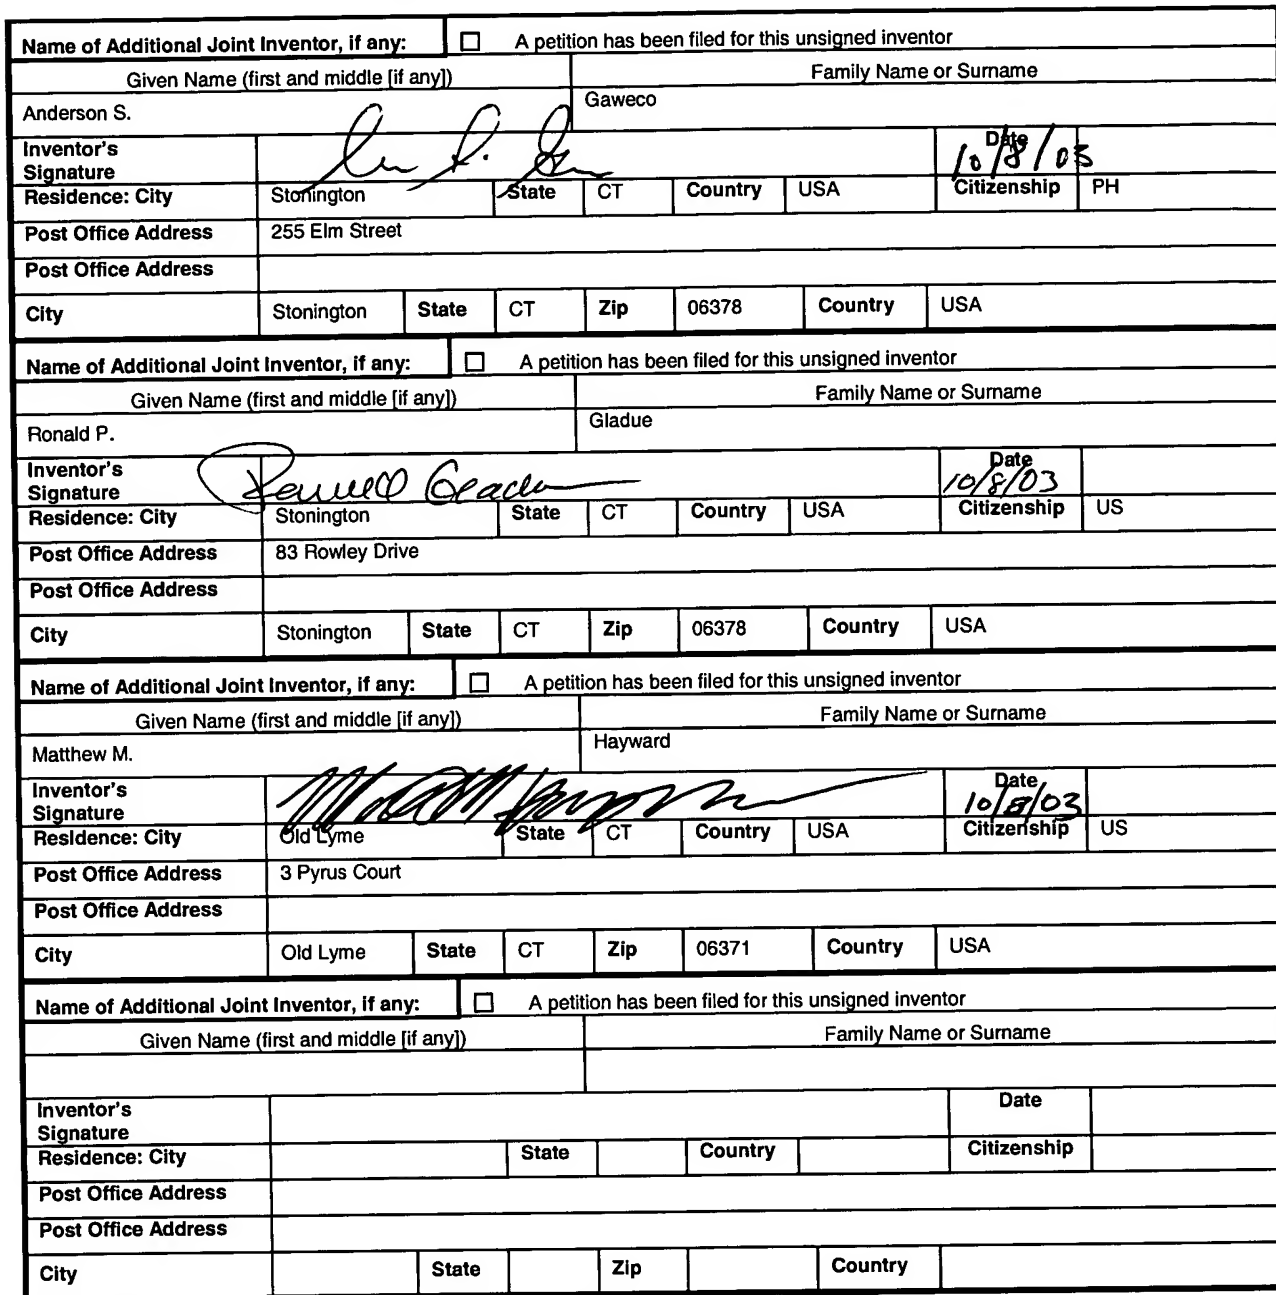 Name of Additional Joint Inventor, if any: ☐ A petition has been filed for this unsigned inventor
Given Name (first and middle [if any]) Family Name or Surname
Anderson S. Gaweco
Inventor's Signature Date 10/8/03
Residence: City Stonington State CT Country USA Citizenship PH
Post Office Address 255 Elm Street
Post Office Address
City Stonington State CT Zip 06378 Country USA
Name of Additional Joint Inventor, if any: ☐ A petition has been filed for this unsigned inventor
Given Name (first and middle [if any]) Family Name or Surname
Ronald P. Gladue
Inventor's Signature Date 10/8/03
Residence: City Stonington State CT Country USA Citizenship US
Post Office Address 83 Rowley Drive
Post Office Address
City Stonington State CT Zip 06378 Country USA
Name of Additional Joint Inventor, if any: ☐ A petition has been filed for this unsigned inventor
Given Name (first and middle [if any]) Family Name or Surname
Matthew M. Hayward
Inventor's Signature Date 10/8/03
Residence: City Old Lyme State CT Country USA Citizenship US
Post Office Address 3 Pyrus Court
Post Office Address
City Old Lyme State CT Zip 06371 Country USA
Name of Additional Joint Inventor, if any: ☐ A petition has been filed for this unsigned inventor
Given Name (first and middle [if any]) Family Name or Surname
Inventor's Signature Date
Residence: City State Country Citizenship
Post Office Address
Post Office Address
City State Zip Country